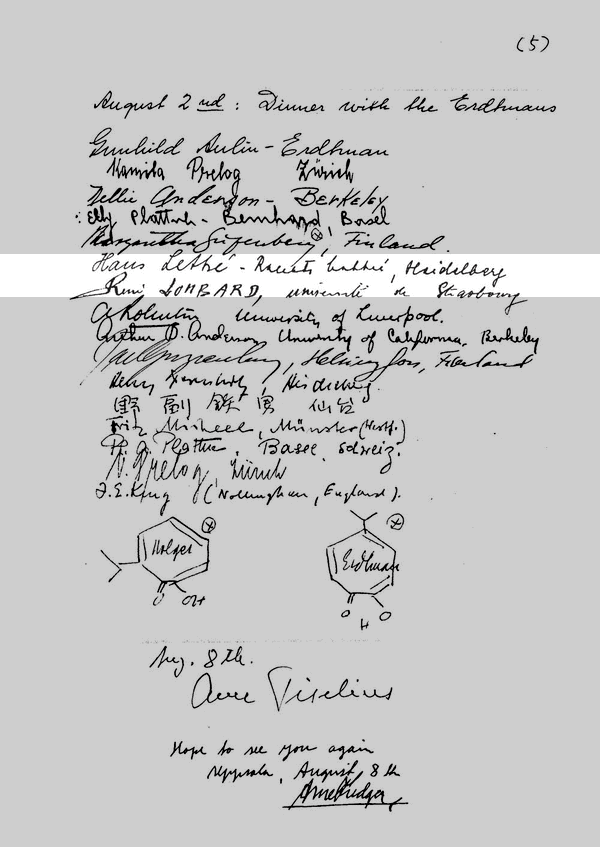 (5)
August 2nd: Dinner with the Erdtmans
Gunhild Aulin-Erdtman
Kamila Prelog Zürich
Nellie Anderson - Berkeley
Elly Plattner - Bernhard, Basel
Margaretha Gripenberg, Finland.
Hans Lettré - Renate Lettré, Heidelberg
René LOMBARD, université de Strasbourg
A Robertson University of Liverpool.
Arthur D. Anderson University of California. Berkeley
Gripenberg, Helsingfors, Finland
Heidelberg.
野副 鉄男 仙台
Fritz Micheel, Münster (Westf.)
Pl. A. Plattner, Basel, Schweiz.
V. Prelog, Zürich
F. E. King (Nottingham, England).
Holger
O OH
Erdtman
O O
H
Aug. 8th.
Arne Tiselius
Hope to see you again
Uppsala, August, 8th
Arne Fredga